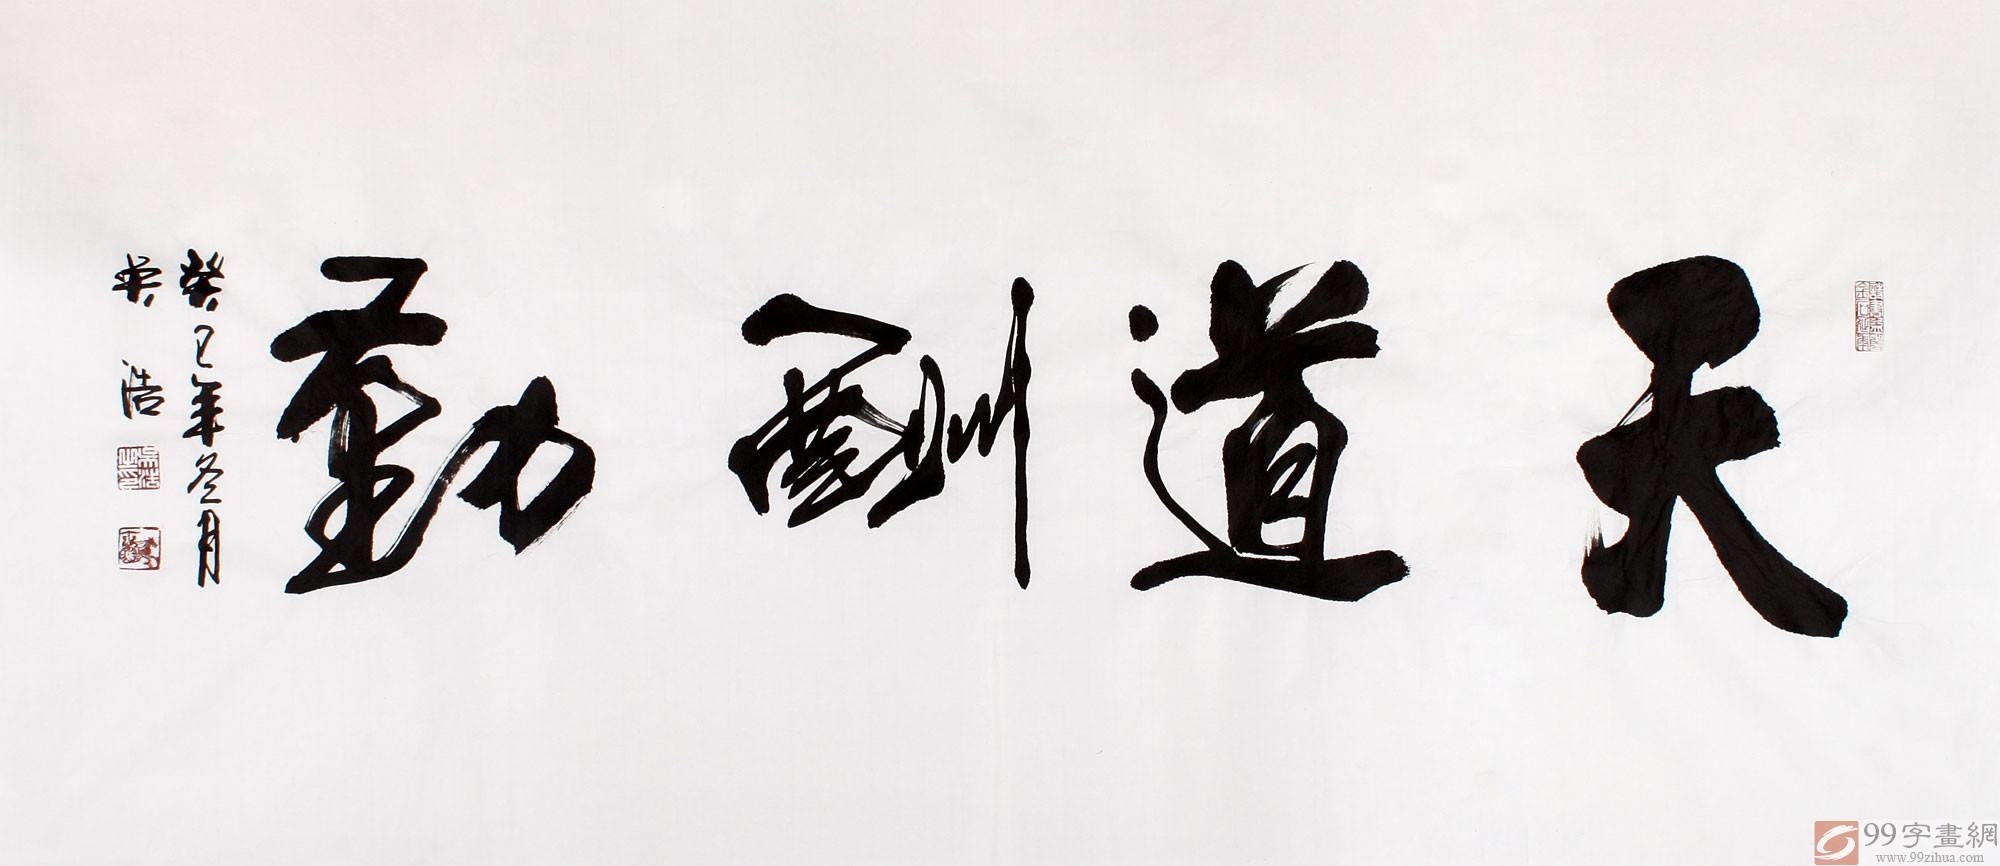 天道酬勤
癸巳年冬月
吴浩
99字畫網
www.99zihua.com